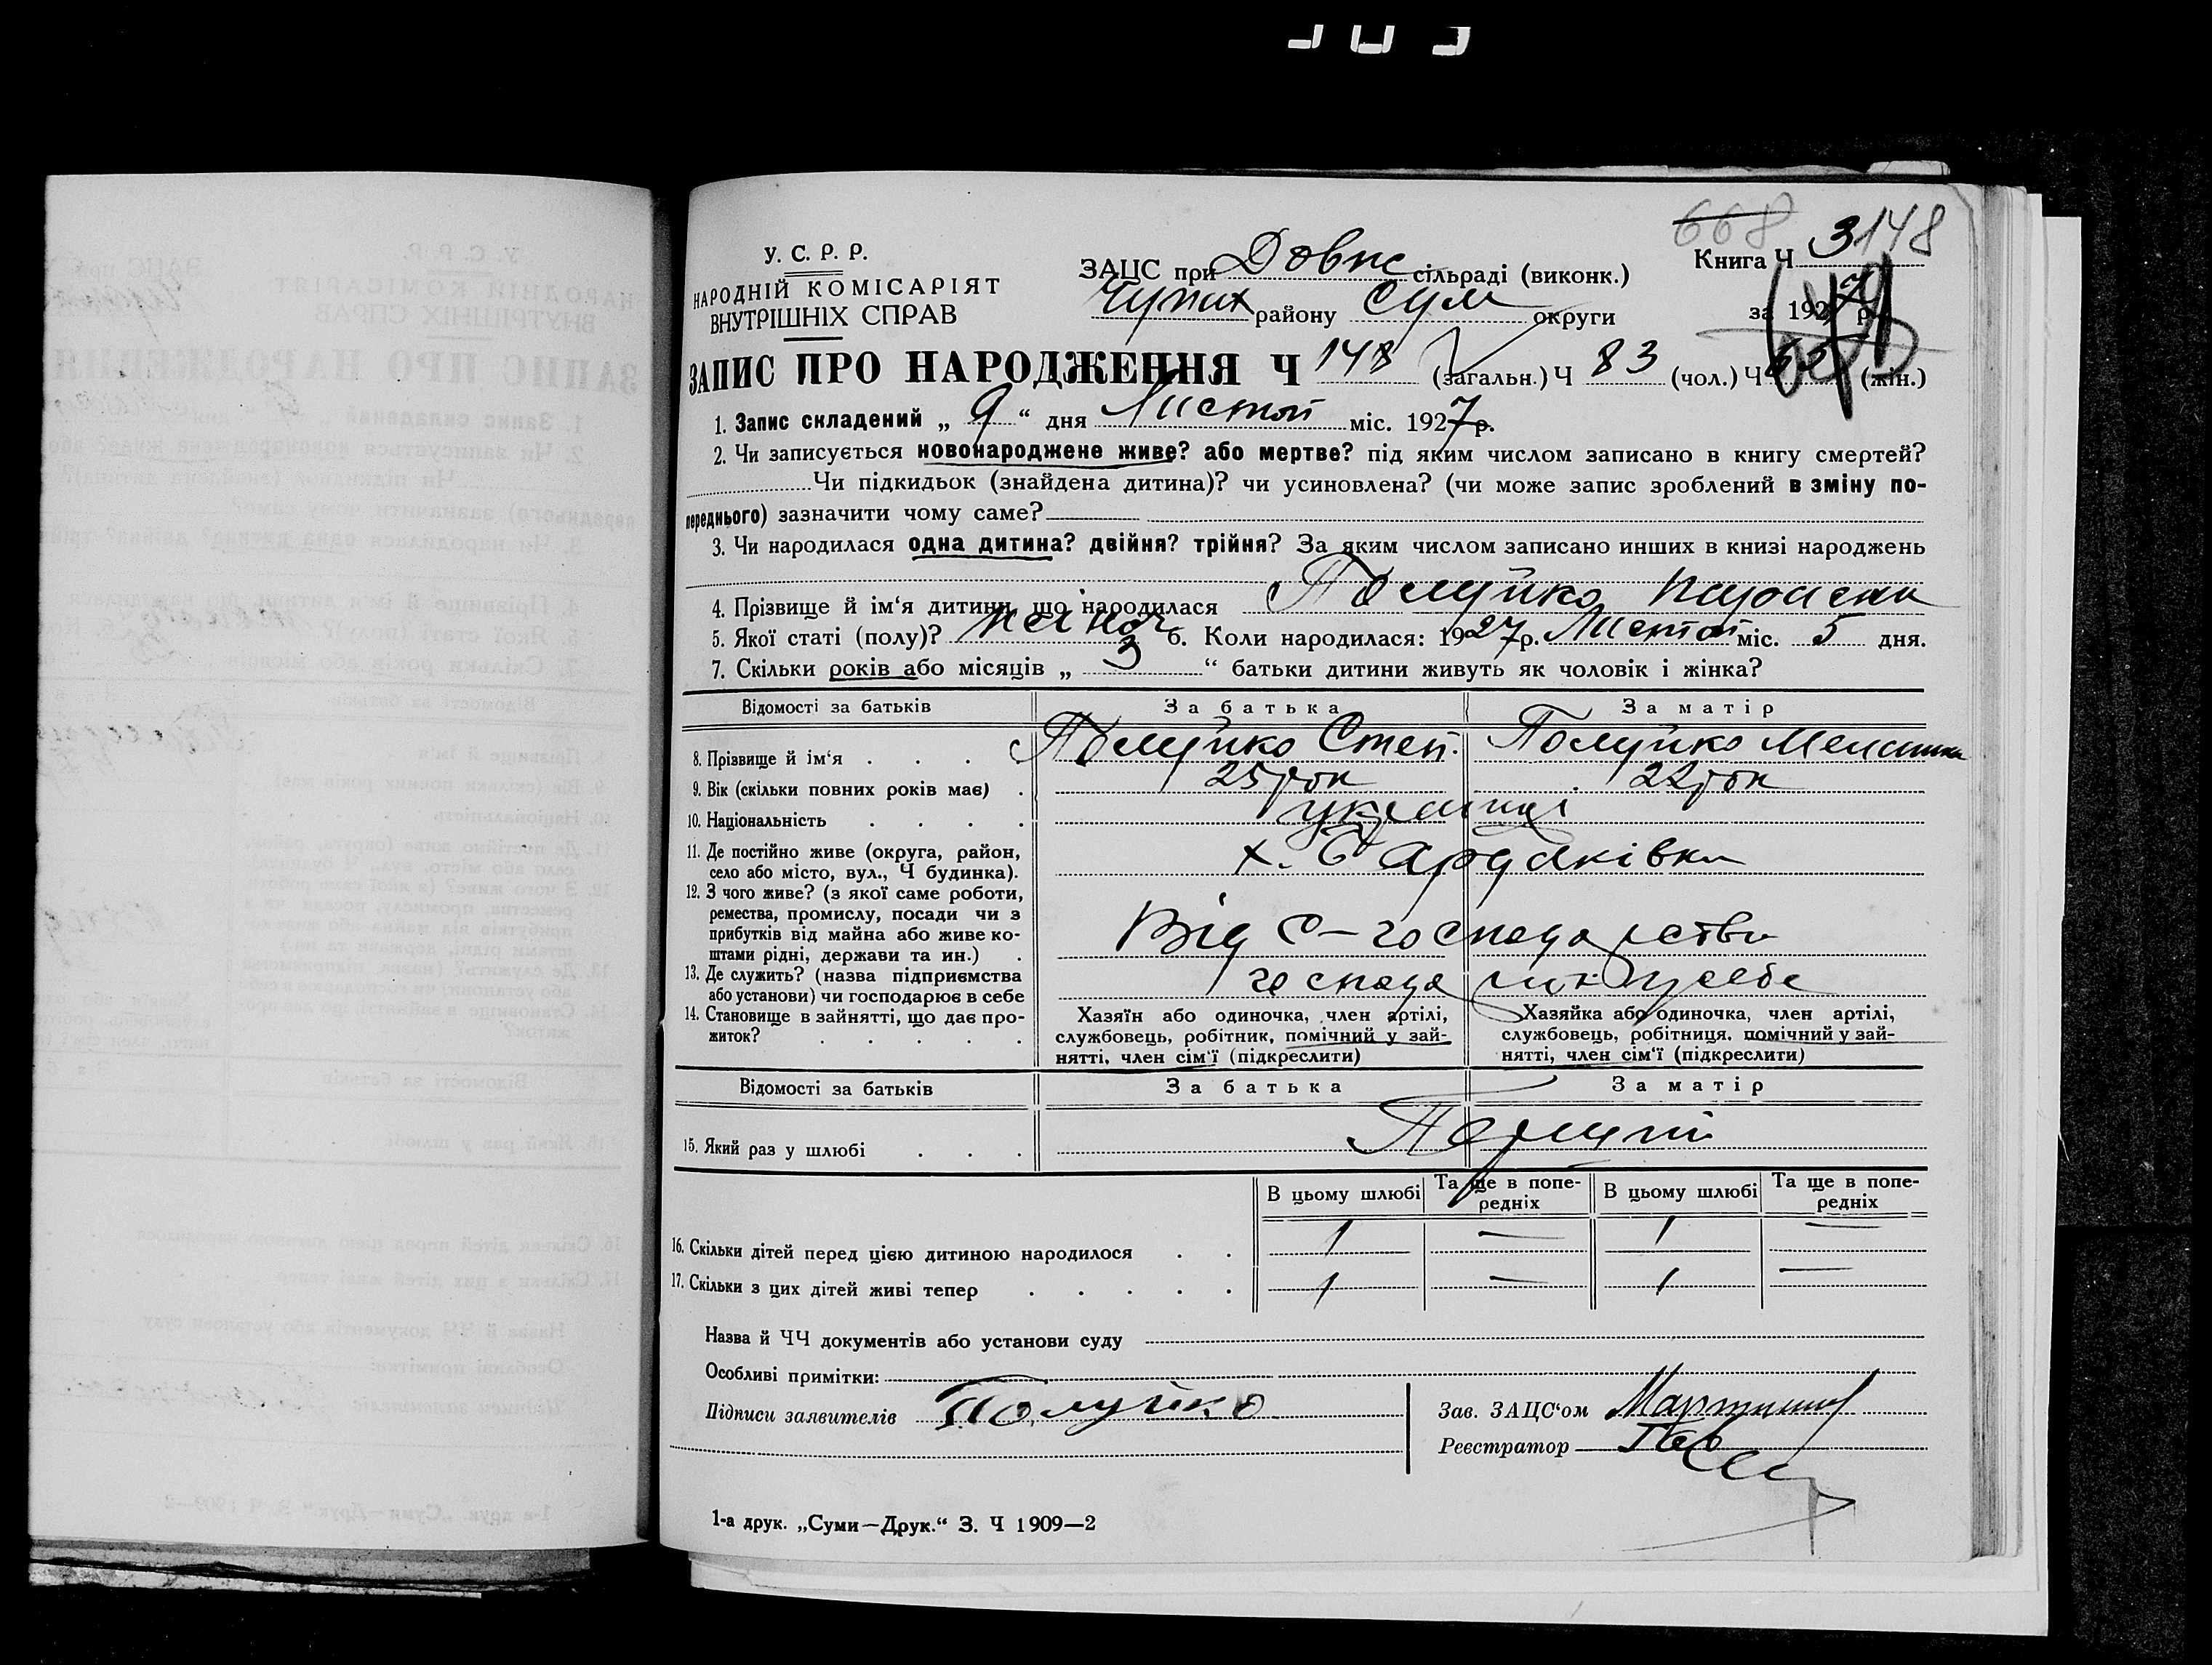 668 148
У. С. Р. Р.
НАРОДНІЙ КОМІСАРІЯТ
ВНУТРІШНІХ СПРАВ
ЗАЦС при Довпс сільраді (виконк.)
Чупах району Сум округи
Книга Ч 3
за 1927 р.
ЗАПИС ПРО НАРОДЖЕННЯ Ч 148 (загальн.) Ч 83 (чол.) Ч (жін.)
1. Запис складений „ 9 “ дня Листоп міс. 1927 р.
2. Чи записується новонароджене живе? або мертве? під яким числом записано в книгу смертей?
Чи підкидьок (знайдена дитина)? чи усиновлена? (чи може запис зроблений в зміну по-
переднього) зазначити чому саме?
3. Чи народилася одна дитина? двійня? трійня? За яким числом записано инших в книзі народжень
4. Прізвище й ім‘я дитини, що народилася Полуйко Параска
5. Якої статі (полу)? жіноч 6. Коли народилася: 1927 р. Листоп міс. 5 дня.
7. Скільки років або місяців „ 3 “ батьки дитини живуть як чоловік і жінка?
Відомості за батьків За батька За матір
8. Прізвище й ім‘я Полуйко Степ. Полуйко Меланка
9. Вік (скільки повних років має) 25 рок 22 рок
10. Національність україниці
11. Де постійно живе (округа, район,
село або місто, вул., Ч будинка). х. Бардаківка
12. З чого живе? (з якої саме роботи,
ремества, промислу, посади чи з
прибутків від майна або живе ко-
штами рідні, держави та ин.) Від с-господарства
13. Де служить? (назва підприємства
або установи) чи господарює в себе
14. Становище в зайнятті, що дає про-
житок?
Хазяїн або одиночка, член артілі,
службовець, робітник, помічний у зай-
нятті, член сім‘ї (підкреслити)
Хазяйка або одиночка, член артілі,
службовець, робітниця, помічний у зай-
нятті, член сім‘ї (підкреслити)
Відомості за батьків За батька За матір
15. Який раз у шлюбі Перший
В цьому шлюбі Та ще в попе-
редніх В цьому шлюбі Та ще в попе-
редніх
16. Скільки дітей перед цією дитиною народилося 1 — 1 —
17. Скільки з цих дітей живі тепер 1 — 1 —
Назва й ЧЧ документів або установи суду
Особливі примітки:
Підписи заявителів Полуйко
Зав. ЗАЦС‘ом
Реєстратор
1-а друк. „Суми—Друк.“ З. Ч 1909—2